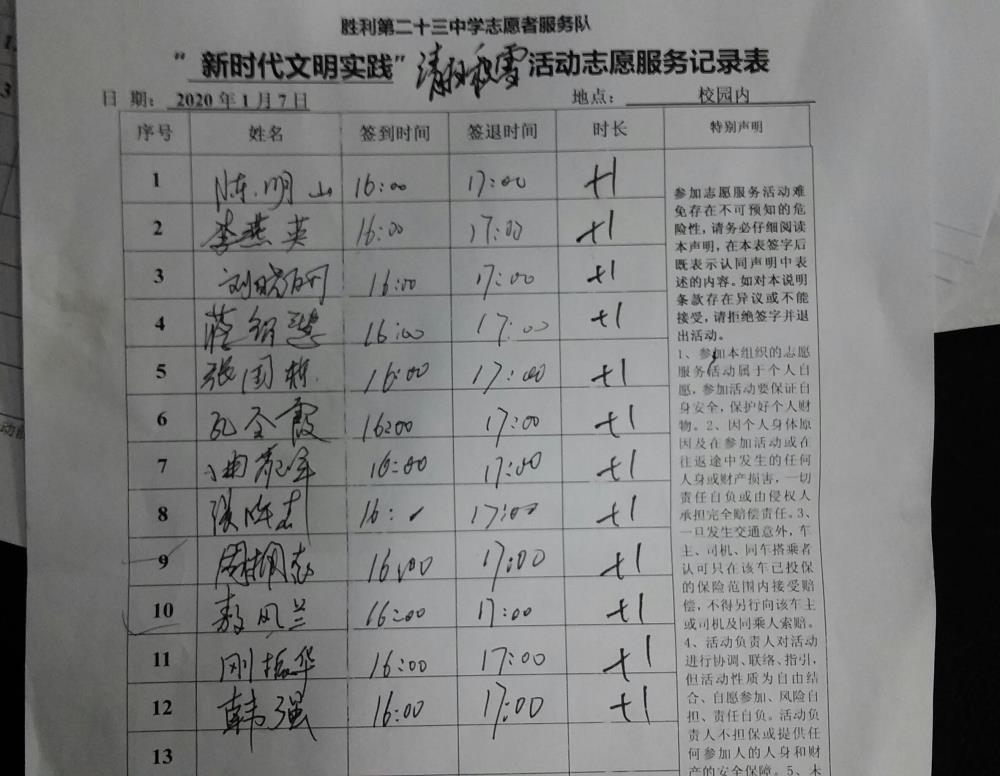 胜利第二十三中学志愿者服务队
“新时代文明实践”清扫积雪活动志愿服务记录表
日 期: 2020 年 1 月 7 日 地点: 校园内
序号 姓名 签到时间 签退时间 时长 特别声明
1 陈明山 16:00 17:00 +1
2 李燕英 16:00 17:00 +1
3 16:00 17:00 +1
4 16:00 17:00 +1
5 张国栋 16:00 17:00 +1
6 16:00 17:00 +1
7 16:00 17:00 +1
8 16: 17:00 +1
9 16:00 17:00 +1
10 16:00 17:00 +1
11 刚振华 16:00 17:00 +1
12 韩强 16:00 17:00 +1
13
参加志愿服务活动难
免存在不可预知的危
险性,请务必仔细阅读
本声明,在本表签字后
既表示认同声明中表
述的内容。如对本说明
条款存在异议或不能
接受,请拒绝签字并退
出活动。
1、参加本组织的志愿
服务活动属于个人自
愿,参加活动要保证自
身安全,保护好个人财
物。2、因个人身体原
因及在参加活动或在
往返途中发生的任何
人身或财产损害,一切
责任自负或由侵权人
承担完全赔偿责任。3、
一旦发生交通意外,车
主、司机、同车搭乘者
认可只在该车已投保
的保险范围内接受赔
偿,不得另行向该车主
或司机及同乘人索赔。
4、活动负责人对活动
进行协调、联络、指引,
但活动性质为自由结
合、自愿参加、风险自
担、责任自负。活动负
责人不担保或提供任
何参加人的人身和财
产的安全保障。5、未